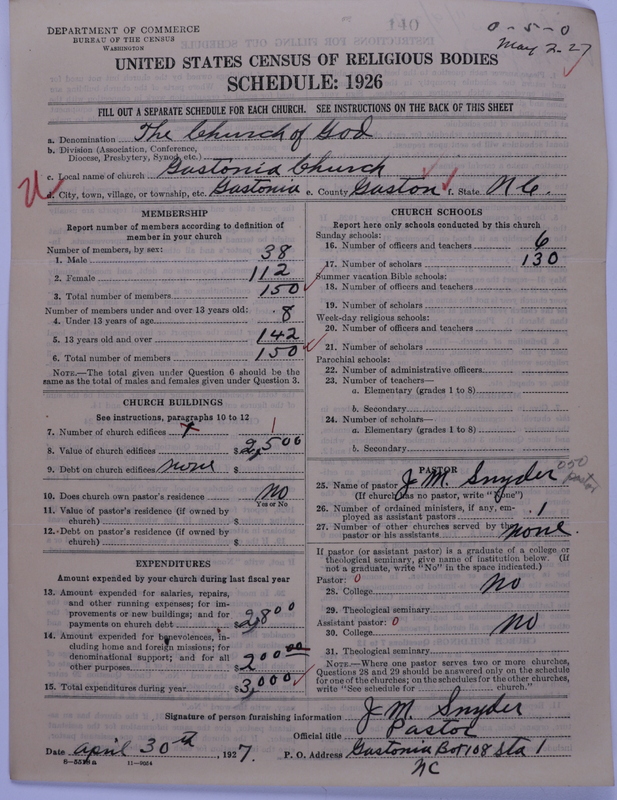 DEPARTMENT OF COMMERCE
BUREAU OF THE CENSUS
WASHINGTON
0-5-0
May 2-27
UNITED STATES CENSUS OF RELIGIOUS BODIES
SCHEDULE: 1926
FILL OUT A SEPARATE SCHEDULE FOR EACH CHURCH. SEE INSTRUCTIONS ON THE BACK OF THIS SHEET
a. Denomination The Church of God
b. Division (Association, Conference,
Diocese, Presbytery, Synod, etc.)
c. Local name of church Gastonia Church
d. City, town, village, or township, etc. Gastonia e. County Gaston f. State N C.
MEMBERSHIP
Report number of members according to definition of
member in your church
Number of members, by sex:
1. Male 38
2. Female 112
3. Total number of members 150
Number of members under and over 13 years old:
4. Under 13 years of age 8
5. 13 years old and over 142
6. Total number of members 150
NOTE.—The total given under Question 6 should be
the same as the total of males and females given under Question 3.
CHURCH BUILDINGS
See instructions, paragraphs 10 to 12
7. Number of church edifices 1
8. Value of church edifices $2,500
9. Debt on church edifices none $
10. Does church own pastor's residence no
Yes or No
11. Value of pastor's residence (if owned by
church) $
12. Debt on pastor's residence (if owned by
church) $
EXPENDITURES
Amount expended by your church during last fiscal year
13. Amount expended for salaries, repairs,
and other running expenses; for im-
provements or new buildings; and for
payments on church debt $2,800
14. Amount expended for benevolences, in-
cluding home and foreign missions; for
denominational support; and for all
other purposes $200 00
15. Total expenditures during year $3,000
CHURCH SCHOOLS
Report here only schools conducted by this church
Sunday schools:
16. Number of officers and teachers 6
17. Number of scholars 130
Summer vacation Bible schools:
18. Number of officers and teachers
19. Number of scholars
Week-day religious schools:
20. Number of officers and teachers
21. Number of scholars
Parochial schools:
22. Number of administrative officers
23. Number of teachers—
a. Elementary (grades 1 to 8)
b. Secondary
24. Number of scholars—
a. Elementary (grades 1 to 8)
b. Secondary
PASTOR
050
pastor
25. Name of pastor J M. Snyder
(If church has no pastor, write "None")
26. Number of ordained ministers, if any, em-
ployed as assistant pastors 1
27. Number of other churches served by the
pastor or his assistants none.
If pastor (or assistant pastor) is a graduate of a college or
theological seminary, give name of institution below. (If
not a graduate, write "No" in the space indicated.)
Pastor: 0
28. College No
29. Theological seminary
Assistant pastor: 0
30. College No
31. Theological seminary
NOTE.—Where one pastor serves two or more churches,
Questions 28 and 29 should be answered only on the schedule
for one of the churches; on the schedules for the other churches,
write "See schedule for church."
Signature of person furnishing information J. M. Snyder
Official title Pastor
Date April 30th, 1927. P. O. Address Gastonia Box 108 Sta 1
NC
8-5518a 11-9054